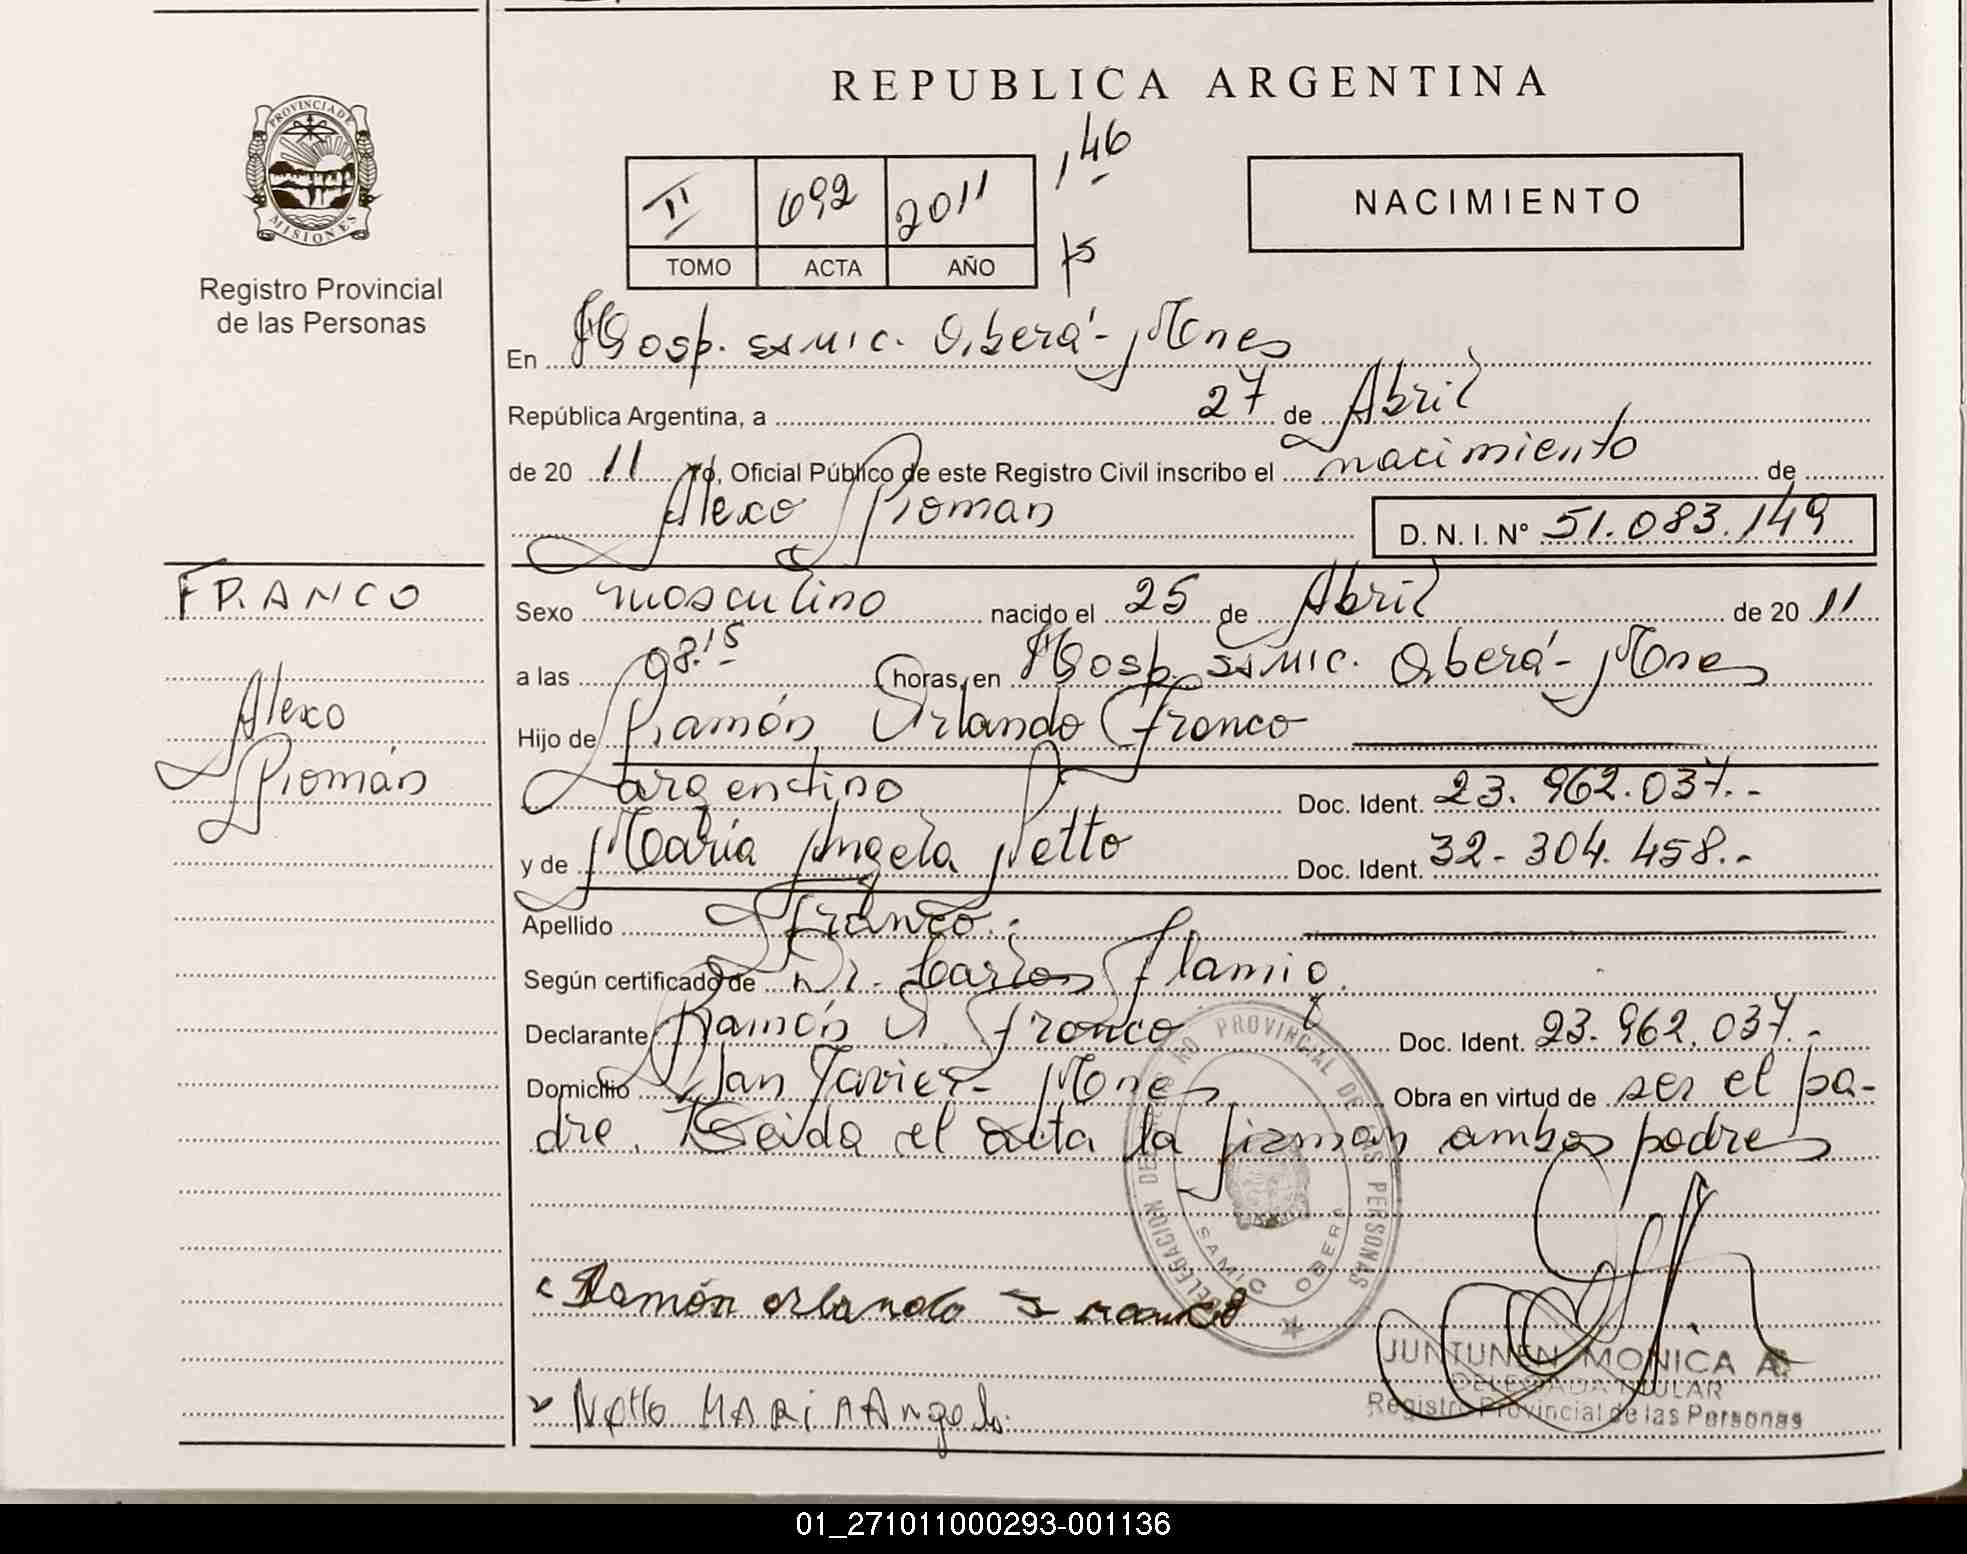 REPUBLICA ARGENTINA
PROVINCIA DE
MISIONES
Registro Provincial
de las Personas
II 692 2011
TOMO ACTA AÑO
146
NACIMIENTO
En Hosp. SSMIC. Oberá - Mnes
República Argentina, a 27 de Abril
de 20 11 Yo, Oficial Público de este Registro Civil inscribo el nacimiento de
Alexo Román
D. N. I. N° 51.083.149
FRANCO
Alexo
Román
Sexo masculino nacido el 25 de Abril de 20 11
a las 08.15 horas, en Hosp. SSMIC. Oberá - Mnes
Hijo de Ramón Orlando Franco
argentino Doc. Ident. 23.962.037.-
y de María Angela Netto Doc. Ident. 32.304.458.-
Apellido Franco.-
Según certificado de Dr. Carlos Flamio.
Declarante Ramón O. Franco Doc. Ident. 23.962.037.-
Domicilio San Javier - Mnes Obra en virtud de ser el pa-
dre. Leida el acta la firman ambos padres
DELEGACION DE REGISTRO PROVINCIAL DE LAS PERSONAS
SAMIC OBERA
Ramón orlando Franco
Netto MARIA Angela.
JUNTUNEN MONICA A.
DELEGADA TITULAR
Registro Provincial de las Personas
01_271011000293-001136